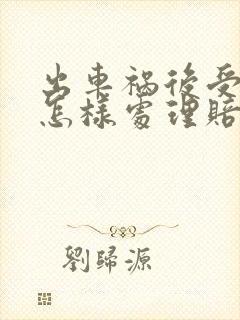 出車禍後受
怎樣處理賠
劉歸源